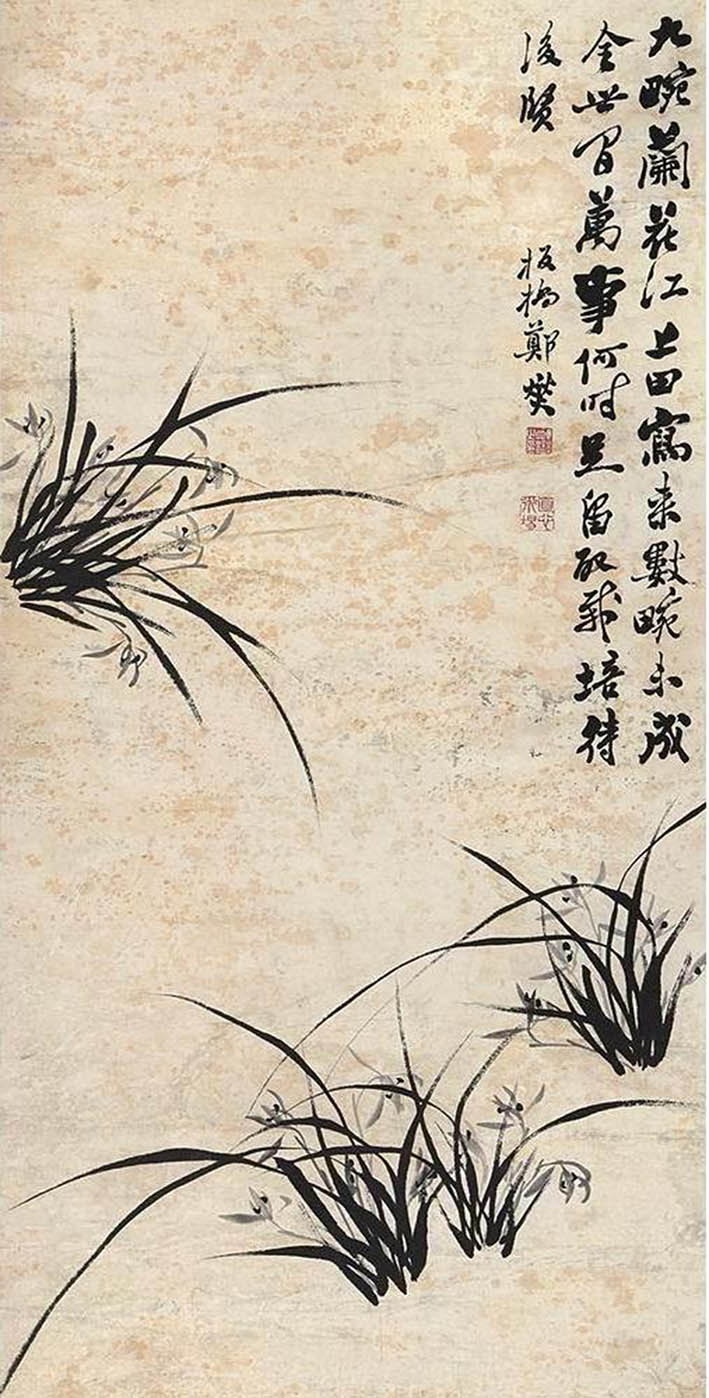 九畹蘭花江上田寫來數畹未成
全世間萬事何时足留取栽培待
後賢
板橋鄭燮
直心道場